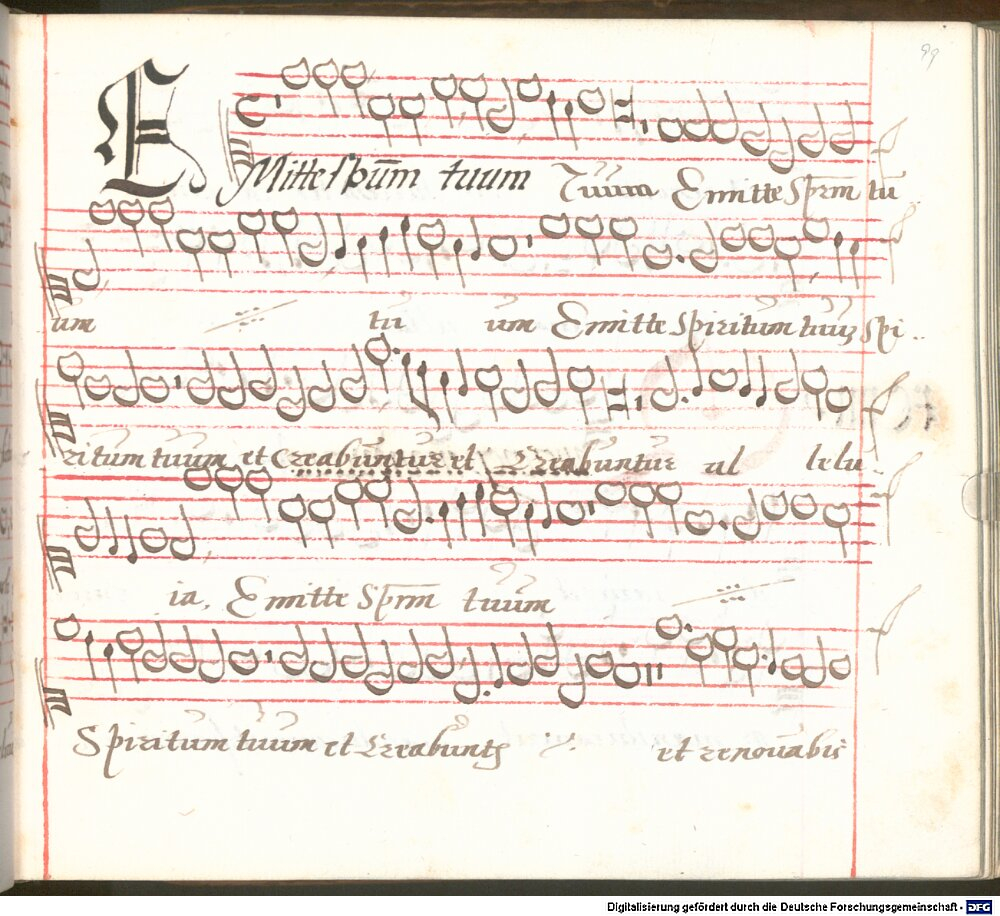 99
EMitte spūm tuum Tuum Emitte Sprm tu
um tu um Emitte Spiritum tuuz Spi..
ritum tuum et Creabuntur et Creabuntur al lelu..
ia, Emitte Sprm tuum
Spiritum tuum et Creabunt et renovabis
Digitalisierung gefördert durch die Deutsche Forschungsgemeinschaft - DFG